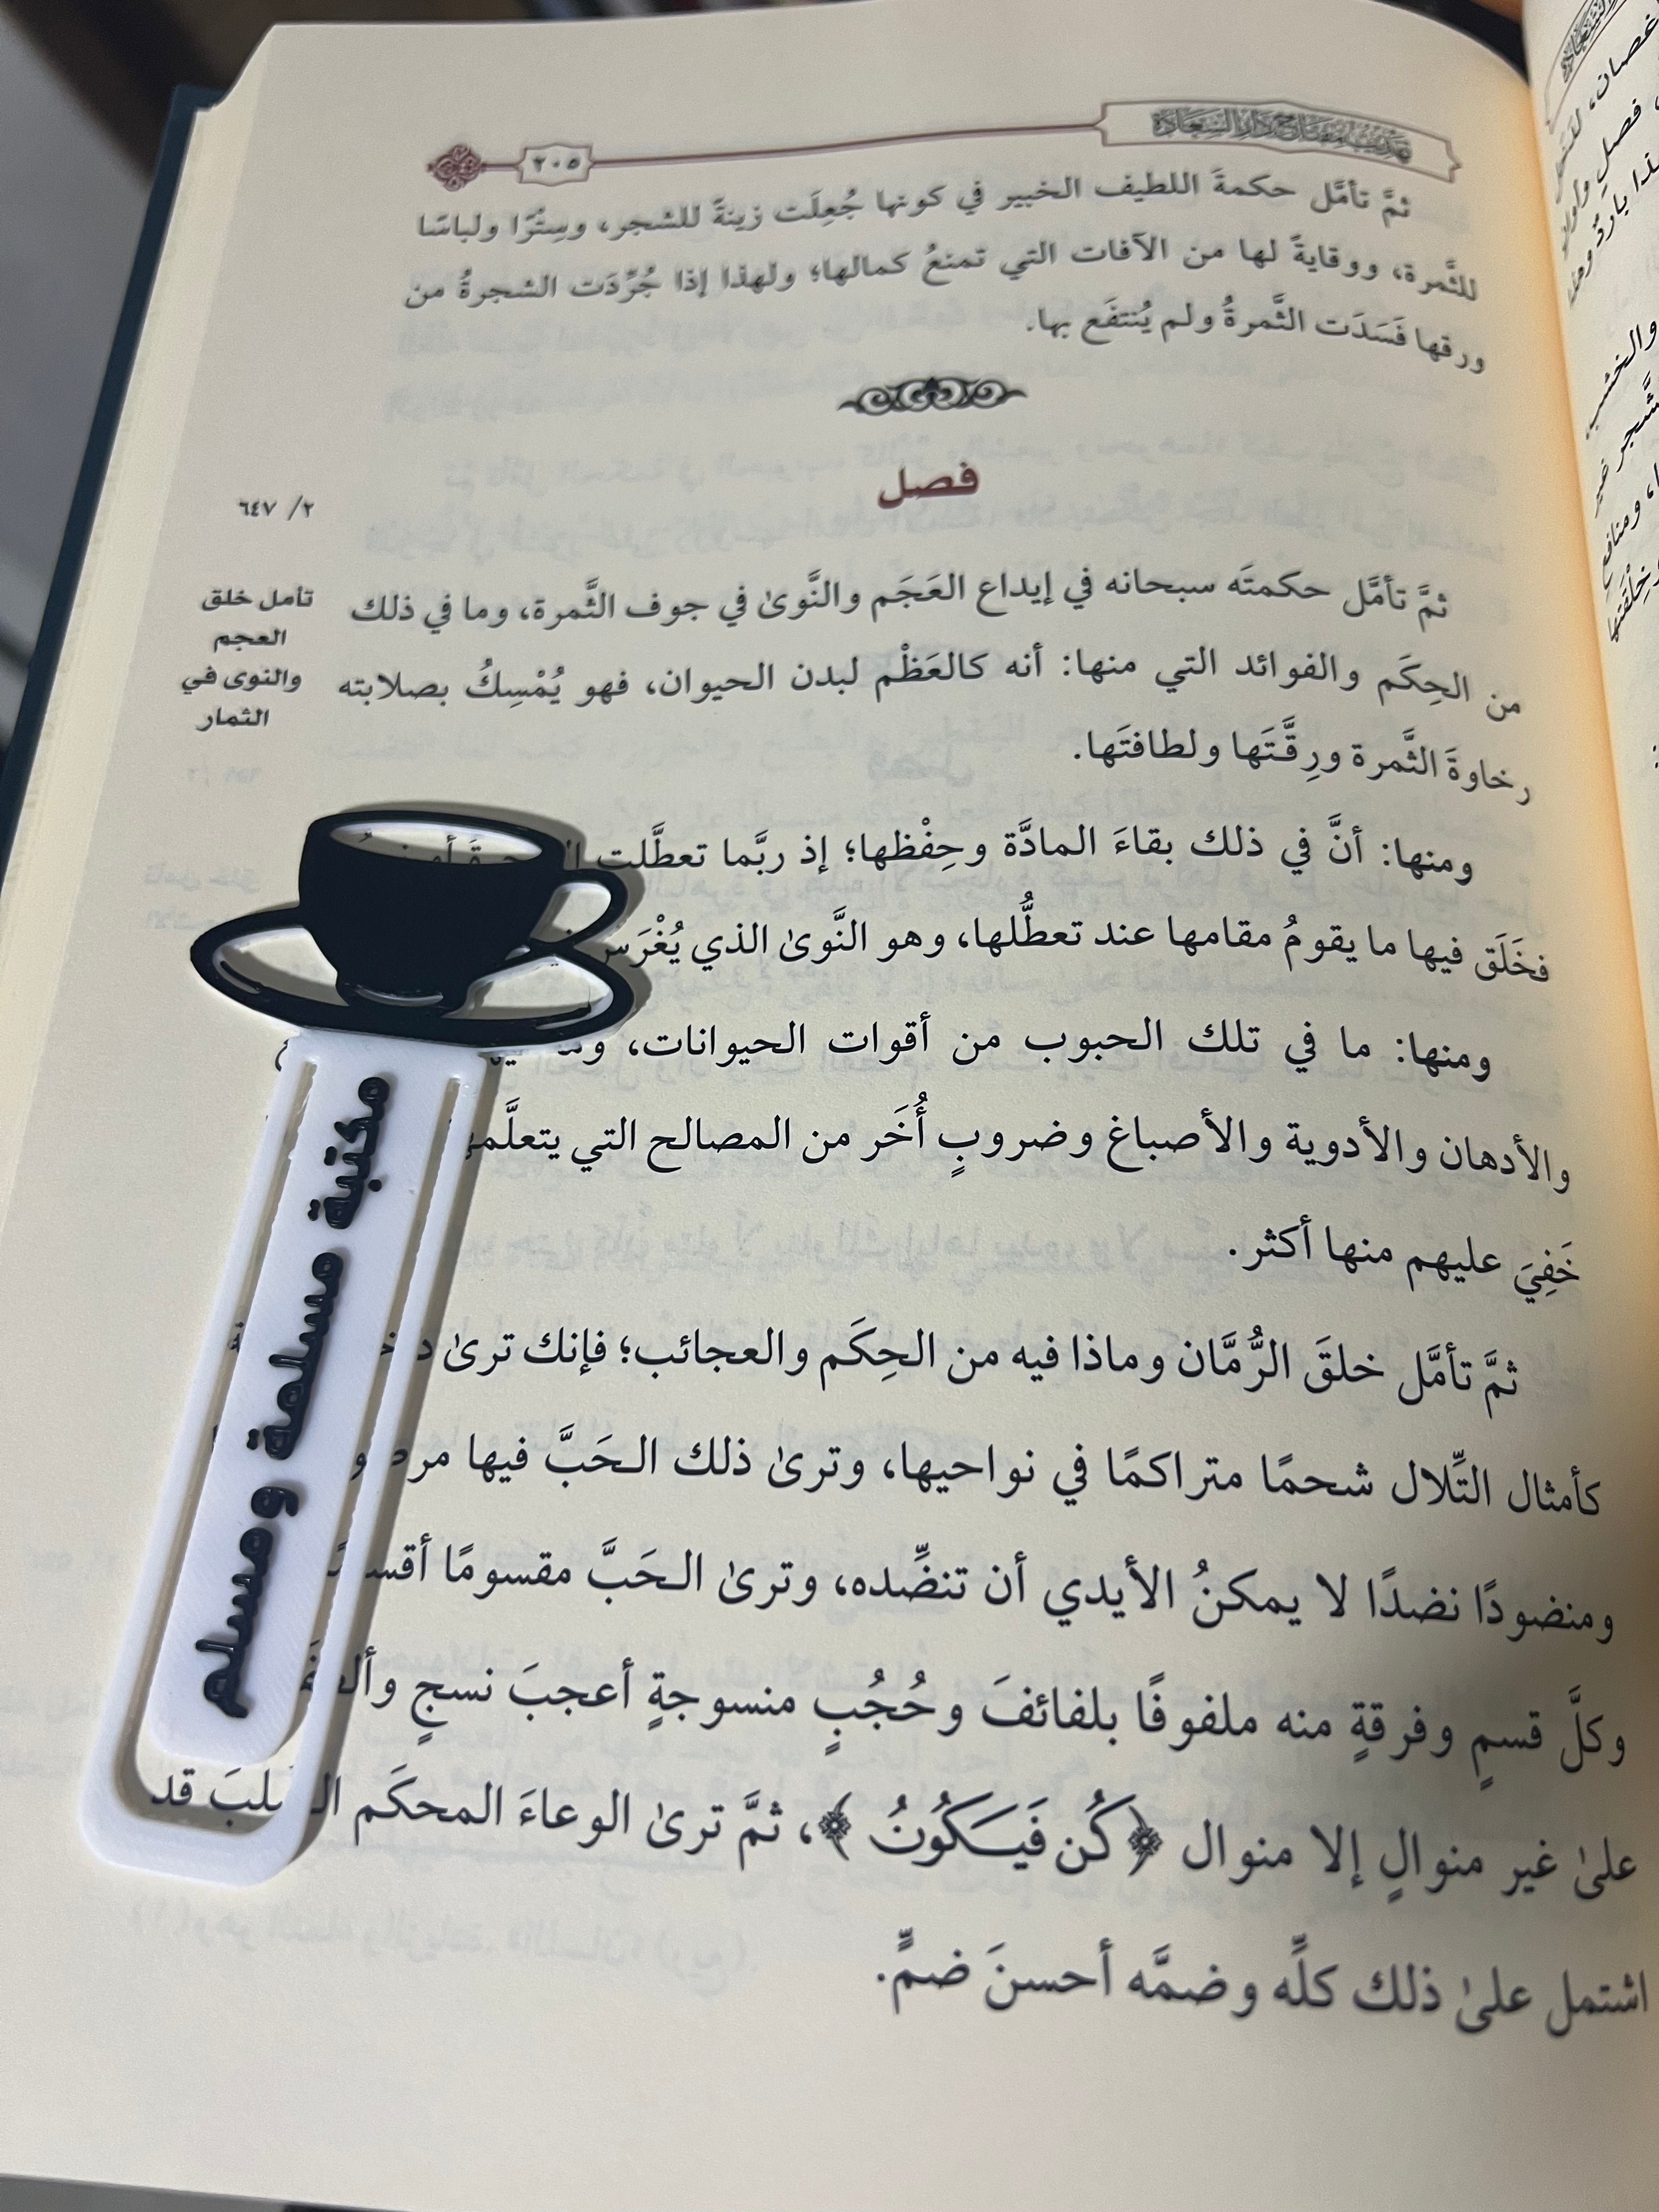 تهذيب مفتاح دار السعادة
٢٠٥
ثمَّ تأمَّل حكمةَ اللطيف الخبير في كونها جُعِلَت زينةً للشجر، وسِتْرًا ولباسًا
للثَّمرة، ووقايةً لها من الآفات التي تمنعُ كمالها؛ ولهذا إذا جُرِّدَت الشجرةُ من
ورقها فَسَدَت الثَّمرةُ ولم يُنتفَع بها.
فصل
٢/ ٦٤٧
تأمل خلق
العجم
والنوى في
الثمار
ثمَّ تأمَّل حكمتَه سبحانه في إيداع العَجَم والنَّوىٰ في جوف الثَّمرة، وما في ذلك
من الحِكَم والفوائد التي منها: أنه كالعَظْم لبدن الحيوان، فهو يُمْسِكُ بصلابته
رخاوةَ الثَّمرة ورِقَّتَها ولطافتَها.
ومنها: أنَّ في ذلك بقاءَ المادَّة وحِفْظها؛ إذ ربَّما تعطَّلت
فخَلَق فيها ما يقومُ مقامها عند تعطُّلها، وهو النَّوىٰ الذي يُغْرَس
ومنها: ما في تلك الحبوب من أقوات الحيوانات،
والأدهان والأدوية والأصباغ وضروبٍ أُخَر من المصالح التي
خَفِيَ عليهم منها أكثر.
ثمَّ تأمَّل خلقَ الرُّمَّان وماذا فيه من الحِكَم والعجائب؛ فإنك ترىٰ
كأمثال التِّلال شحمًا متراكمًا في نواحيها، وترىٰ ذلك الحَبَّ فيها
ومنضودًا نضدًا لا يمكنُ الأيدي أن تنضِّده، وترىٰ الحَبَّ مقسومًا
وكلَّ قسمٍ وفرقةٍ منه ملفوفًا بلفائفَ وحُجُبٍ منسوجةٍ أعجبَ نسجٍ
علىٰ غير منوالٍ إلا منوال ﴿كُن فَيَكُونُ﴾، ثمَّ ترىٰ الوعاءَ المحكَم قد
اشتمل علىٰ ذلك كلِّه وضمَّه أحسنَ ضمٍّ.
مكتبة مسلمة ومسلم